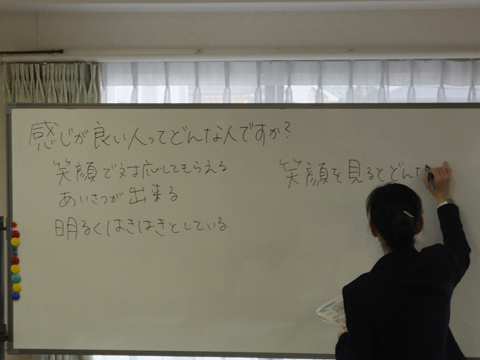 感じが良い人ってどんな人ですか?
笑顔で対応してもらえる
あいさつが出来る
明るくはきはきとしている
笑顔を見るとどんな